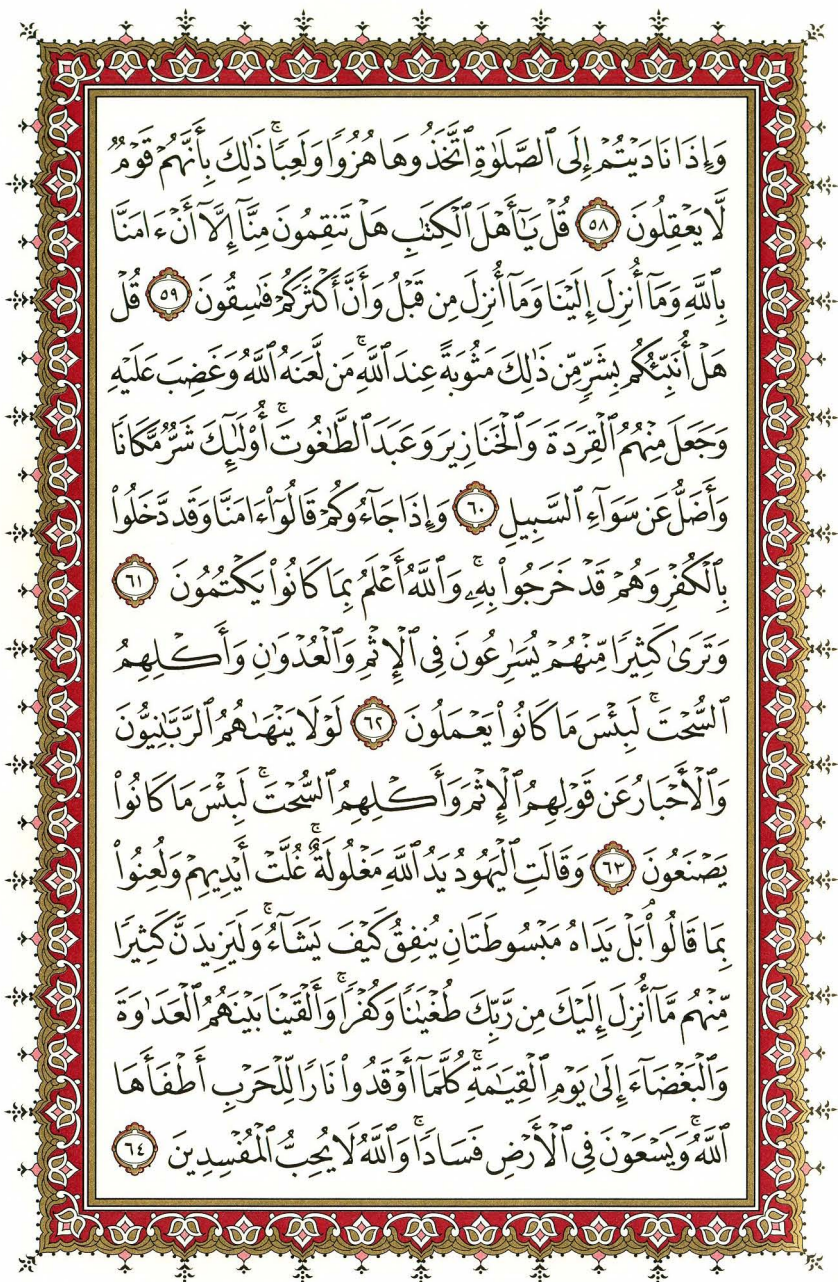 وَإِذَا نَادَيْتُمْ إِلَى ٱلصَّلَوٰةِ ٱتَّخَذُوهَا هُزُوًا وَلَعِبًا ۚ ذَٰلِكَ بِأَنَّهُمْ قَوْمٌ
لَّا يَعْقِلُونَ ٥٨ قُلْ يَـٰٓأَهْلَ ٱلْكِتَـٰبِ هَلْ تَنقِمُونَ مِنَّآ إِلَّآ أَنْ ءَامَنَّا
بِٱللَّهِ وَمَآ أُنزِلَ إِلَيْنَا وَمَآ أُنزِلَ مِن قَبْلُ وَأَنَّ أَكْثَرَكُمْ فَـٰسِقُونَ ٥٩ قُلْ
هَلْ أُنَبِّئُكُم بِشَرٍّ مِّن ذَٰلِكَ مَثُوبَةً عِندَ ٱللَّهِ ۚ مَن لَّعَنَهُ ٱللَّهُ وَغَضِبَ عَلَيْهِ
وَجَعَلَ مِنْهُمُ ٱلْقِرَدَةَ وَٱلْخَنَازِيرَ وَعَبَدَ ٱلطَّـٰغُوتَ ۚ أُو۟لَـٰٓئِكَ شَرٌّ مَّكَانًا
وَأَضَلُّ عَن سَوَآءِ ٱلسَّبِيلِ ٦٠ وَإِذَا جَآءُوكُمْ قَالُوٓا۟ ءَامَنَّا وَقَد دَّخَلُوا۟
بِٱلْكُفْرِ وَهُمْ قَدْ خَرَجُوا۟ بِهِۦ ۚ وَٱللَّهُ أَعْلَمُ بِمَا كَانُوا۟ يَكْتُمُونَ ٦١
وَتَرَىٰ كَثِيرًا مِّنْهُمْ يُسَـٰرِعُونَ فِى ٱلْإِثْمِ وَٱلْعُدْوَٰنِ وَأَكْلِهِمُ
ٱلسُّحْتَ ۚ لَبِئْسَ مَا كَانُوا۟ يَعْمَلُونَ ٦٢ لَوْلَا يَنْهَىٰهُمُ ٱلرَّبَّـٰنِيُّونَ
وَٱلْأَحْبَارُ عَن قَوْلِهِمُ ٱلْإِثْمَ وَأَكْلِهِمُ ٱلسُّحْتَ ۚ لَبِئْسَ مَا كَانُوا۟
يَصْنَعُونَ ٦٣ وَقَالَتِ ٱلْيَهُودُ يَدُ ٱللَّهِ مَغْلُولَةٌ ۚ غُلَّتْ أَيْدِيهِمْ وَلُعِنُوا۟
بِمَا قَالُوا۟ ۘ بَلْ يَدَاهُ مَبْسُوطَتَانِ يُنفِقُ كَيْفَ يَشَآءُ ۚ وَلَيَزِيدَنَّ كَثِيرًا
مِّنْهُم مَّآ أُنزِلَ إِلَيْكَ مِن رَّبِّكَ طُغْيَـٰنًا وَكُفْرًا ۚ وَأَلْقَيْنَا بَيْنَهُمُ ٱلْعَدَٰوَةَ
وَٱلْبَغْضَآءَ إِلَىٰ يَوْمِ ٱلْقِيَـٰمَةِ ۚ كُلَّمَآ أَوْقَدُوا۟ نَارًا لِّلْحَرْبِ أَطْفَأَهَا
ٱللَّهُ ۚ وَيَسْعَوْنَ فِى ٱلْأَرْضِ فَسَادًا ۚ وَٱللَّهُ لَا يُحِبُّ ٱلْمُفْسِدِينَ ٦٤